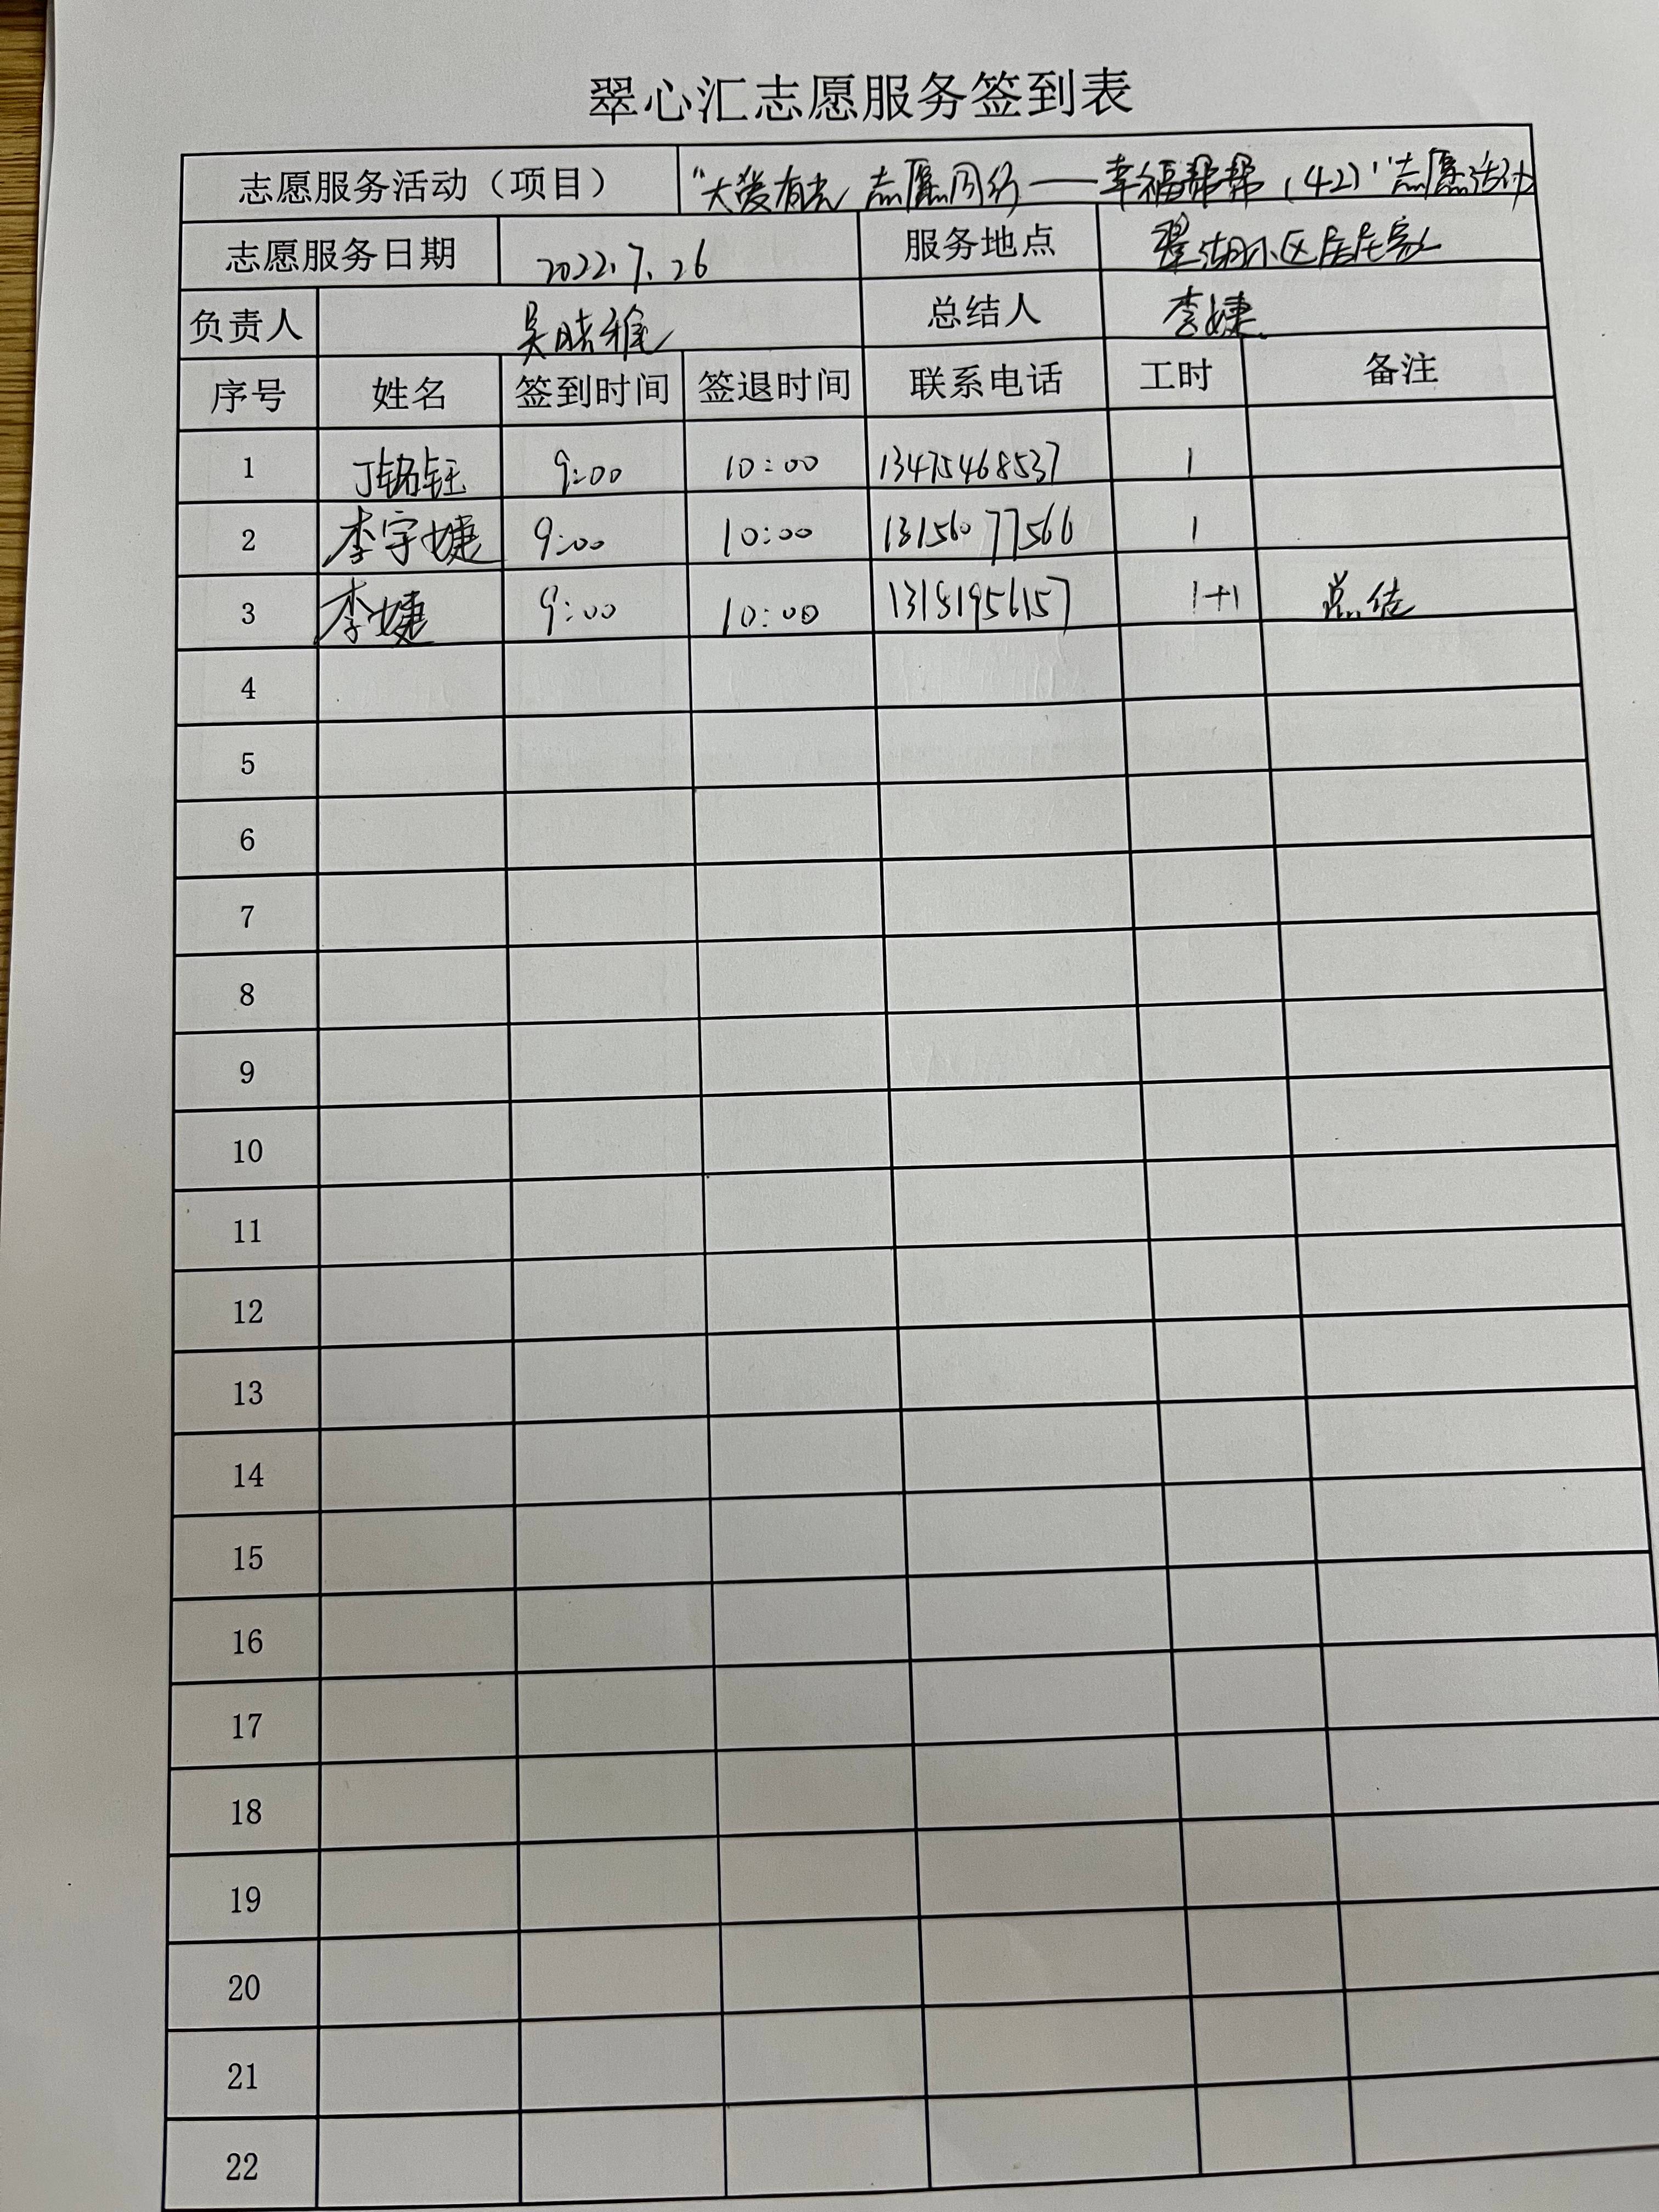 翠心汇志愿服务签到表
志愿服务活动（项目） "大爱有光 志愿同行——幸福帮帮（42）"志愿活动
志愿服务日期 2022.7.26 服务地点 翠湖小区居民家
负责人 吴晓雅 总结人 李婕
序号 姓名 签到时间 签退时间 联系电话 工时 备注
1 丁铭钰 9:00 10:00 13475468537 1
2 李宇婕 9:00 10:00 13156077566 1
3 李婕 9:00 10:00 13181956157 1+1 总结
4
5
6
7
8
9
10
11
12
13
14
15
16
17
18
19
20
21
22